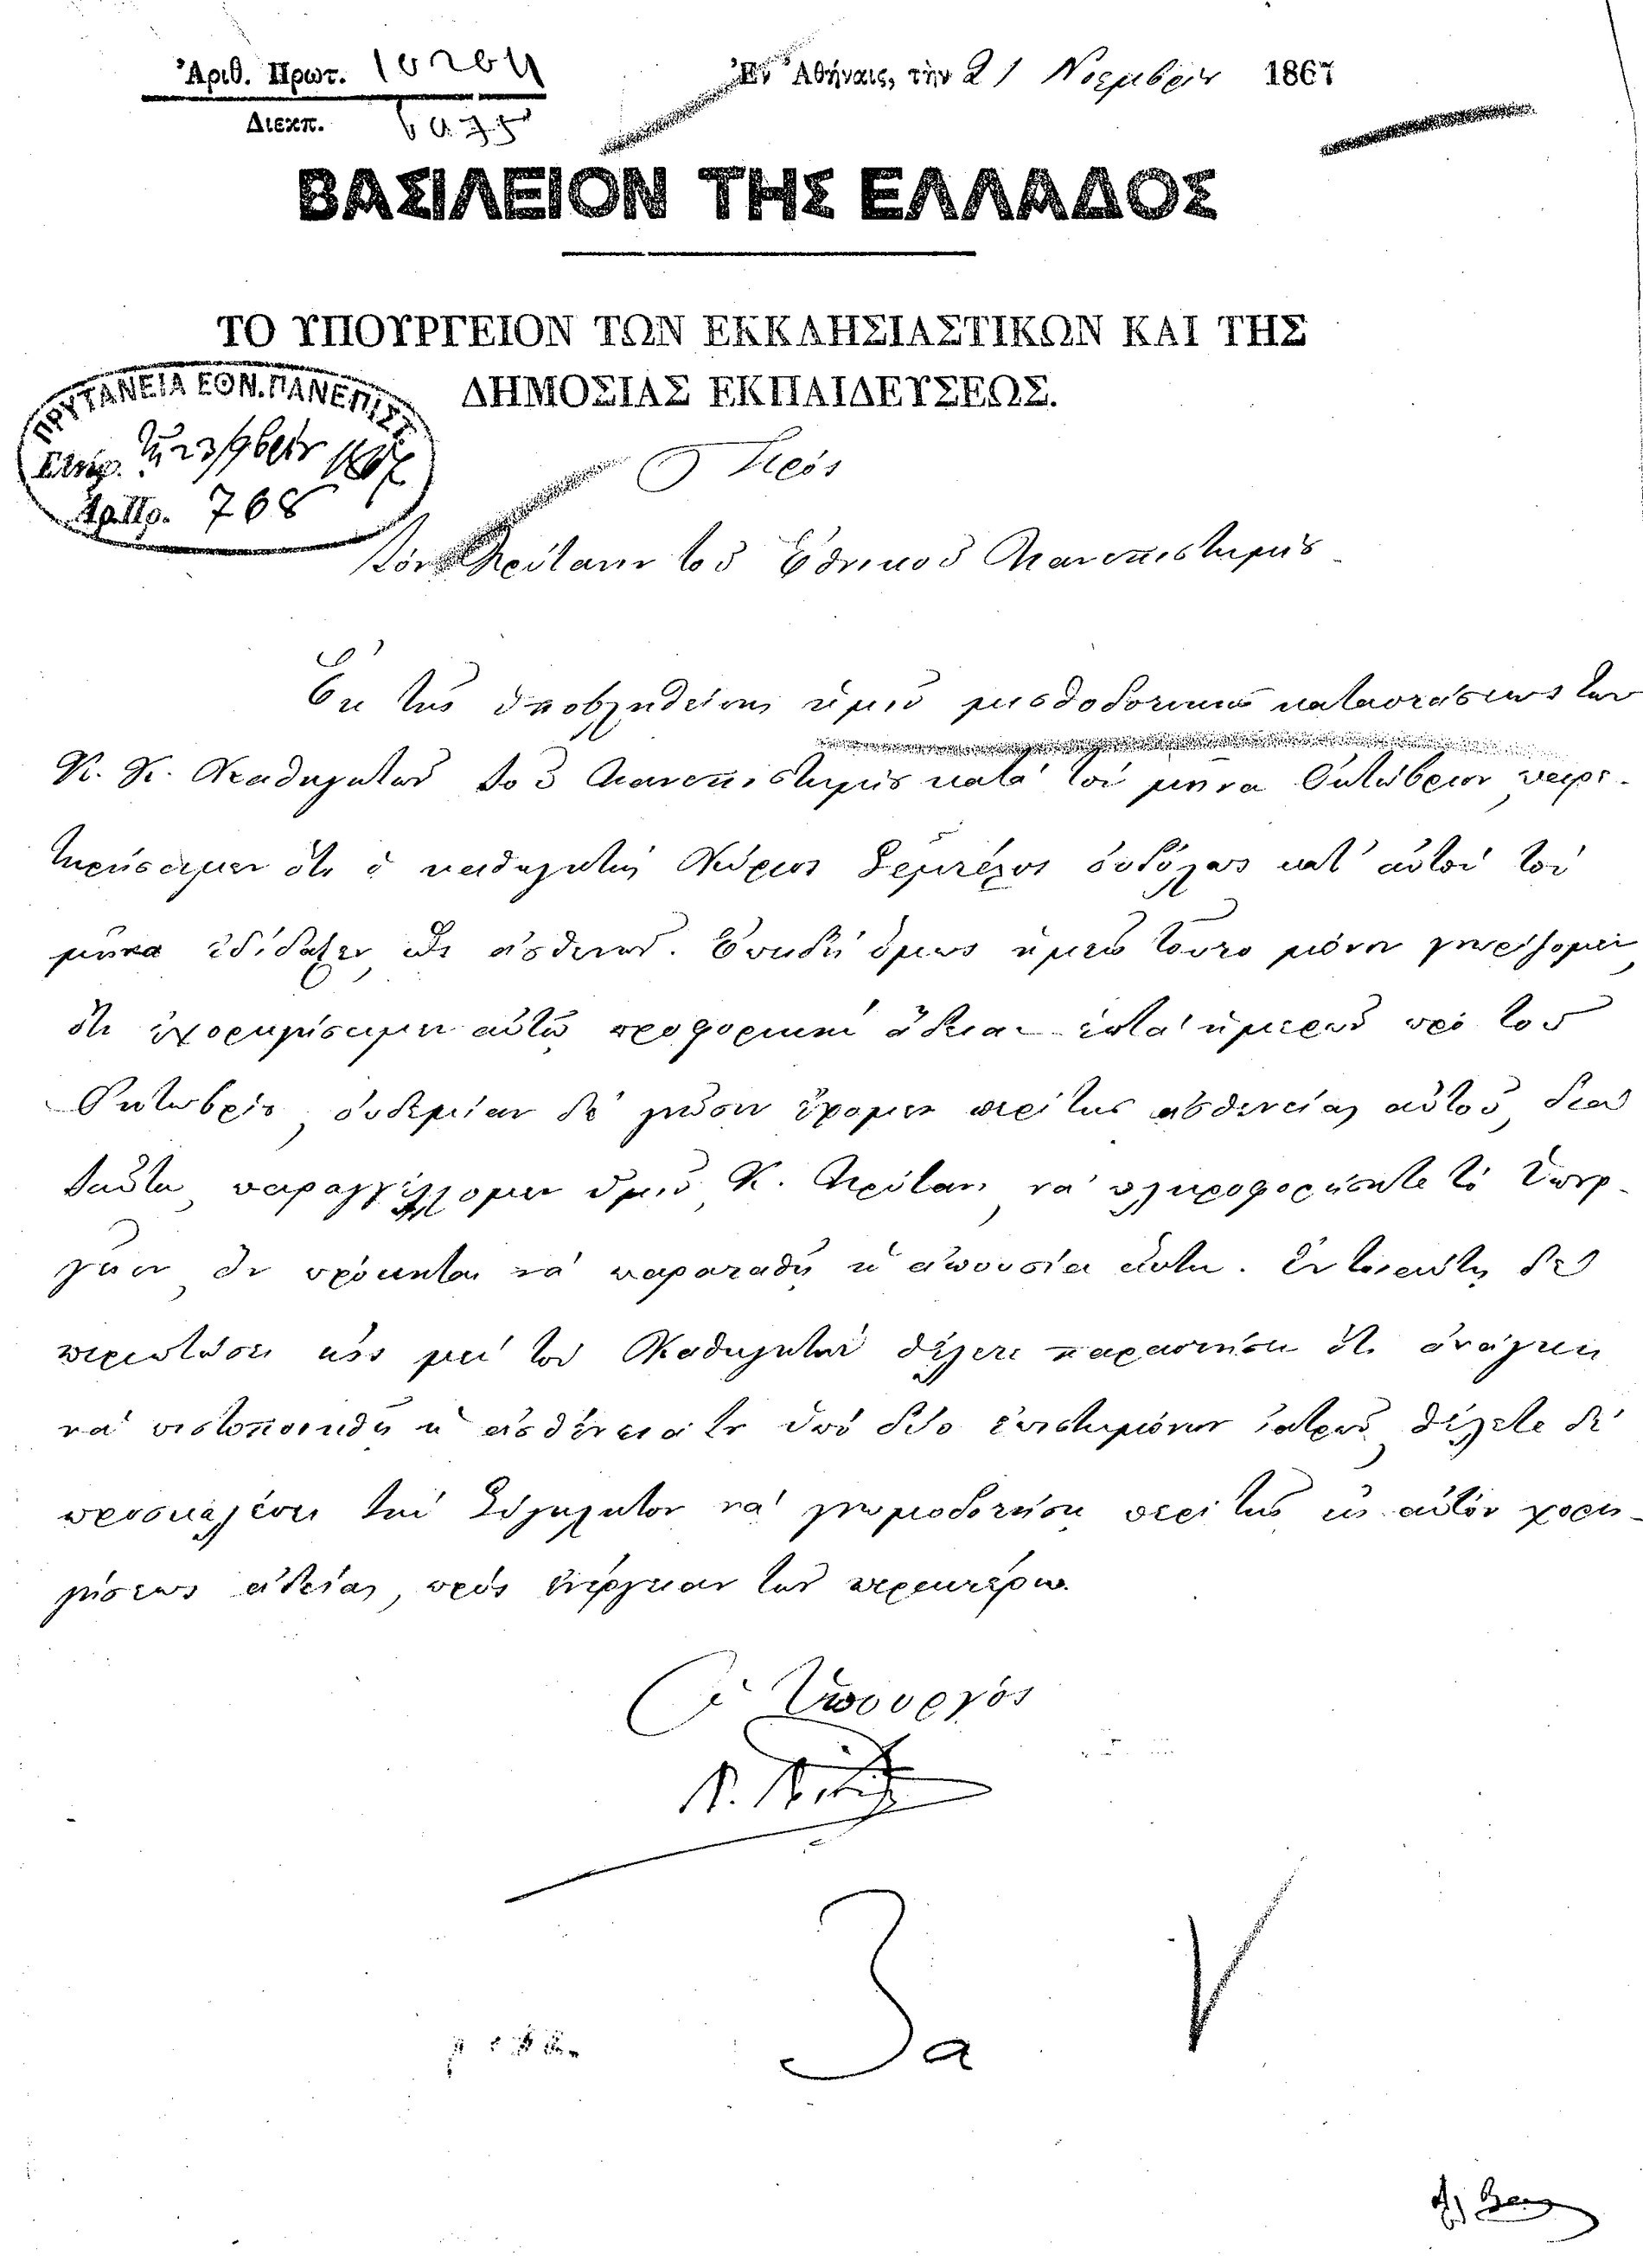 Ἀριθ. Πρωτ. 10204
Διεκπ. 6475
Ἐν Ἀθήναις, τὴν 21 Νοεμβρίου 1867
ΒΑΣΙΛΕΙΟΝ ΤΗΣ ΕΛΛΑΔΟΣ
ΤΟ ΥΠΟΥΡΓΕΙΟΝ ΤΩΝ ΕΚΚΛΗΣΙΑΣΤΙΚΩΝ ΚΑΙ ΤΗΣ
ΔΗΜΟΣΙΑΣ ΕΚΠΑΙΔΕΥΣΕΩΣ.
ΠΡΥΤΑΝΕΙΑ ΕΘΝ. ΠΑΝΕΠΙΣΤ.
τῇ 23/9βρίου 1867
Ἀρ. Πρ. 768
Πρός
τὸν Πρύτανιν τοῦ Ἐθνικοῦ Πανεπιστημίου
Ἐκ τῆς ὑποβληθείσης ἡμῖν μισθοδοτικῆς καταστάσεως τῶν
Κ. Κ. Καθηγητῶν τοῦ Πανεπιστημίου κατὰ τὸν μῆνα Ὀκτώβριον, παρε-
τηρήσαμεν ὅτι ὁ καθηγητὴς Κύριος Σεμτέλος οὐδόλως κατ' αὐτὸν τὸν
μῆνα ἐδίδαξεν, ὡς ἀσθενῶν. Ἐπειδὴ ὅμως ἡμεῖς τοῦτο μόνον γνωρίζομεν,
ὅτι ἐχορηγήσαμεν αὐτῷ προφορικὴν ἄδειαν ἑπτὰ ἡμερῶν πρὸ τοῦ
Ὀκτωβρίου, οὐδεμίαν δὲ γνῶσιν ἔχομεν περὶ τῆς ἀσθενείας αὐτοῦ, διὰ
ταῦτα, παραγγέλλομεν ὑμῖν, Κ. Πρύτανι, νὰ πληροφορήσητε τὸ Ὑπουρ-
γεῖον, ἂν πρόκηται νὰ παραταθῇ ἡ ἀπουσία αὕτη. Ἐν τοιαύτῃ δὲ
περιπτώσει εἰς μὲν τὸν Καθηγητὴν θέλετε παραστήσει ὅτι ἀνάγκη
νὰ πιστοποιηθῇ ἡ ἀσθένειά του ὑπὸ δύο ἐπιστημόνων ἰατρῶν, θέλετε δὲ
προσκαλέσει τὴν Σύγκλητον νὰ γνωμοδοτήσῃ περὶ τῆς εἰς αὐτὸν χορη-
γήσεως ἀδείας, πρὸς ἐνέργειαν τῶν περαιτέρω.
Ὁ Ὑπουργός
3α